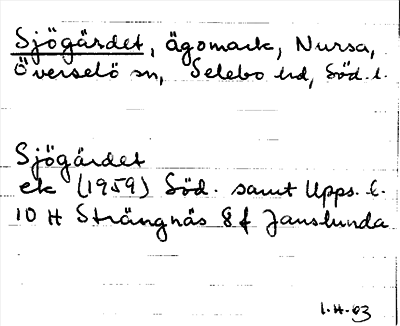 Sjögärdet, ägomark, Nursa,
Överselö sn, Selebo hd, Söd. l.
Sjögärdet
ek (1959) Söd. samt Upps. l.
10 H Strängnäs 8 f Janslunda
1.H.63